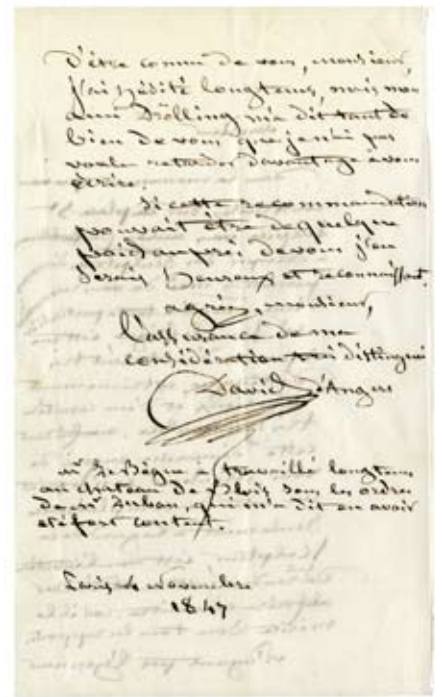 D'être connu de vous, monsieur,
j'ai hésité longtems, mais mon
ami Drölling m'a dit tant de
bien de vous que je n'ai pas
voulu retarder davantage a vous
écrire.
Si cette recommandation
pouvait être de quelque
poids auprès de vous j'en
serais heureux et reconnaissant.
agréez, monsieur,
l'assurance de ma
considération très distinguée
David d'Angers
mr Le Bègue a travaillé longtems
au chateau de Blois sous les ordres
de mr Duban, qui m'a dit en avoir
été fort content.
Paris novembre
1847